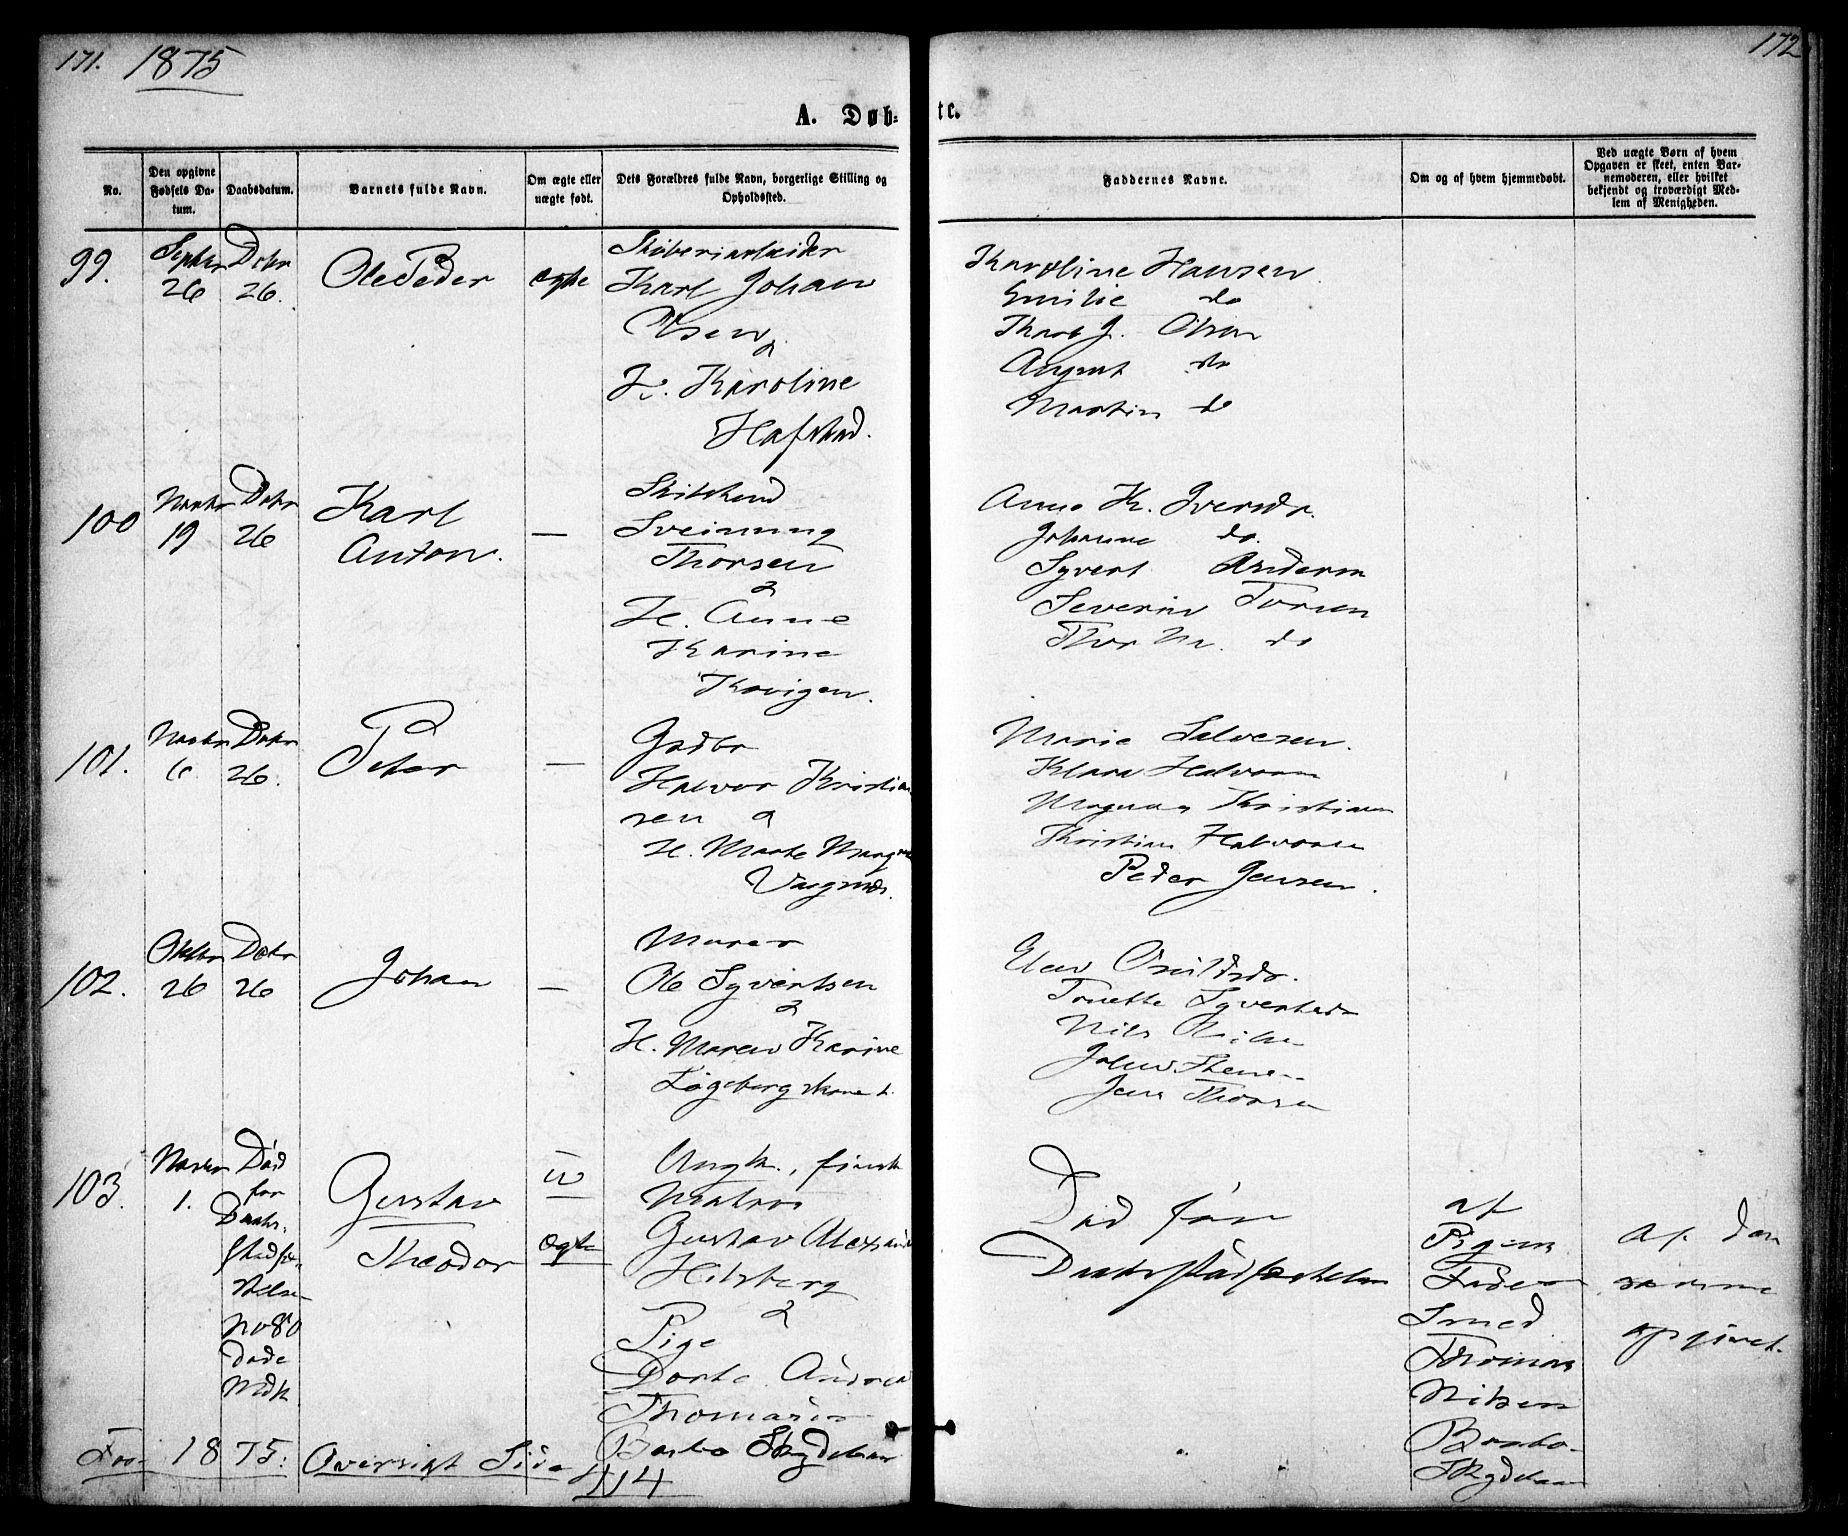 171. 1875
172
A. Døb-
te.
No.
Den opgivne Fødsels Da-
tum.
Daabsdatum.
Barnets fulde Navn.
Om ægte eller
uægte født.
Dets Forældres fulde Navn, borgerlige Stilling og
Opholdssted.
Faddernes Navne.
Om og af hvem hjemmedøbt.
Ved uægte Børn af hvem
Opgaven er skeet, enten Bar-
nemoderen, eller hvilket
bekjendt og troværdigt Med-
lem af Menigheden.
99.
Septbr
26
Dcbr
26.
Ole Peder
ægte
Karl Johan
Olsen
&
H. Karoline
Hafstad.
Karoline Hansen
Emilie do
Karl J. Olsen
August do
Martin do
100
Novbr
19
Dcbr
26
Karl
Anton.
—
Sveinung
Thorsen
&
H. Anne
Karine
Anna K. Iversdr.
Johanne do.
Syvert Andersen
Severin Torsen
Thor M. do
101.
Novbr
6.
Dcbr
26.
Peter
—
Gadbr
Halvor Kristian
sen &
H. Marte
Marie Salvesen.
Klara Halvorsen
Magnus Kristiansen
Kristian Halvorsen
Peder Jensen.
102.
Oktbr
26
Dcbr
26
Johan
—
Murer
Ole Syvertsen
&
H. Maren Karine
Elen
Tonette Syvertsen
Nils
Jens Thorsen
103.
Novbr
1.
Død
før
Daabs-
stadfæ-
stelsen
No 80
Døde
Mdk
Gustav
Theodor
u
ægte
Ungk., finsk
Matros
Gustav Alexander
&
Pige
Dorte Andrea
Thomasen
Død før
Daabsstadfæstelsen
af
Pigens
Fader
Smed
Thomas
Nilsen
Af den
samme
opgivet.
For 1875: Oversigt Side
414